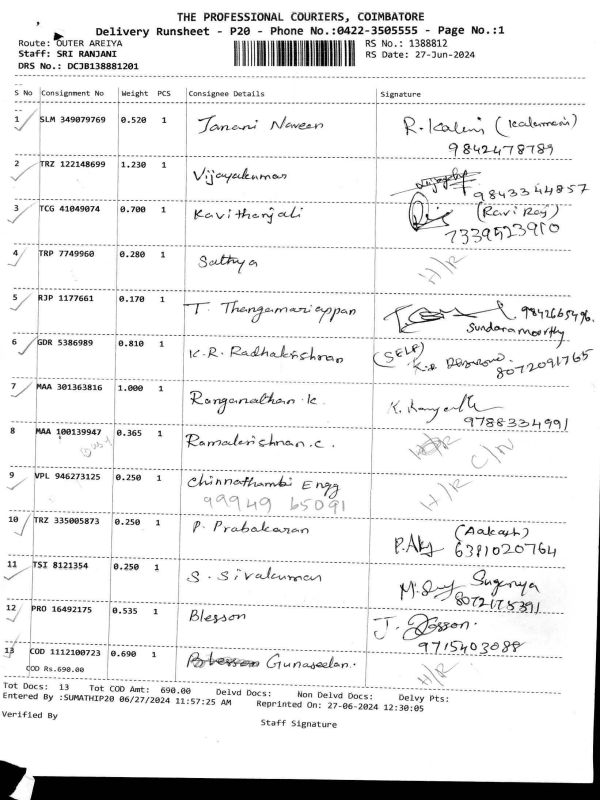 THE PROFESSIONAL COURIERS, COIMBATORE
Delivery Runsheet - P20 - Phone No.:0422-3505555 - Page No.:1
Route: OUTER AREIYA RS No.: 1388812
Staff: SRI RANJANI RS Date: 27-Jun-2024
DRS No.: DCJB138881201
S No Consignment No Weight PCS Consignee Details Signature
1 SLM 349079769 0.520 1 Janani Naveen R. Kalmi (Kalermani)
9842478789
2 TRZ 122148699 1.230 1 Vijayakumar
9843344857
3 TCG 41049074 0.700 1 Kavithanjali (Ravi Raj)
7339523910
4 TRP 7749960 0.280 1 Sathya H/R
5 RJP 1177661 0.170 1 T. Thangamariappan 9842665496
Sundaramoorthy
6 GDR 5386989 0.810 1 K.R. Radhakrishnan (SELF)
8072091765
7 MAA 301363816 1.000 1 Ranganathan k.
9788334991
8 MAA 100139947 0.365 1 Ramakrishnan.c. H/R C/N
9 VPL 946273125 0.250 1 Chinnathambi Engg H/R
99949 65091
10 TRZ 335005873 0.250 1 P. Prabakaran (Aakash)
6381020764
11 TSI 8121354 0.250 1 S. Sivakumar Suganya
8072175391
12 PRO 16492175 0.535 1 Blesson J. Blesson.
9715403088
13 COD 1112100723 0.690 1 Gunaseelan. H/R
COD Rs.690.00
Tot Docs: 13 Tot COD Amt: 690.00 Delvd Docs: Non Delvd Docs: Delvy Pts:
Entered By :SUMATHIP20 06/27/2024 11:57:25 AM Reprinted On: 27-06-2024 12:30:05
Verified By
Staff Signature